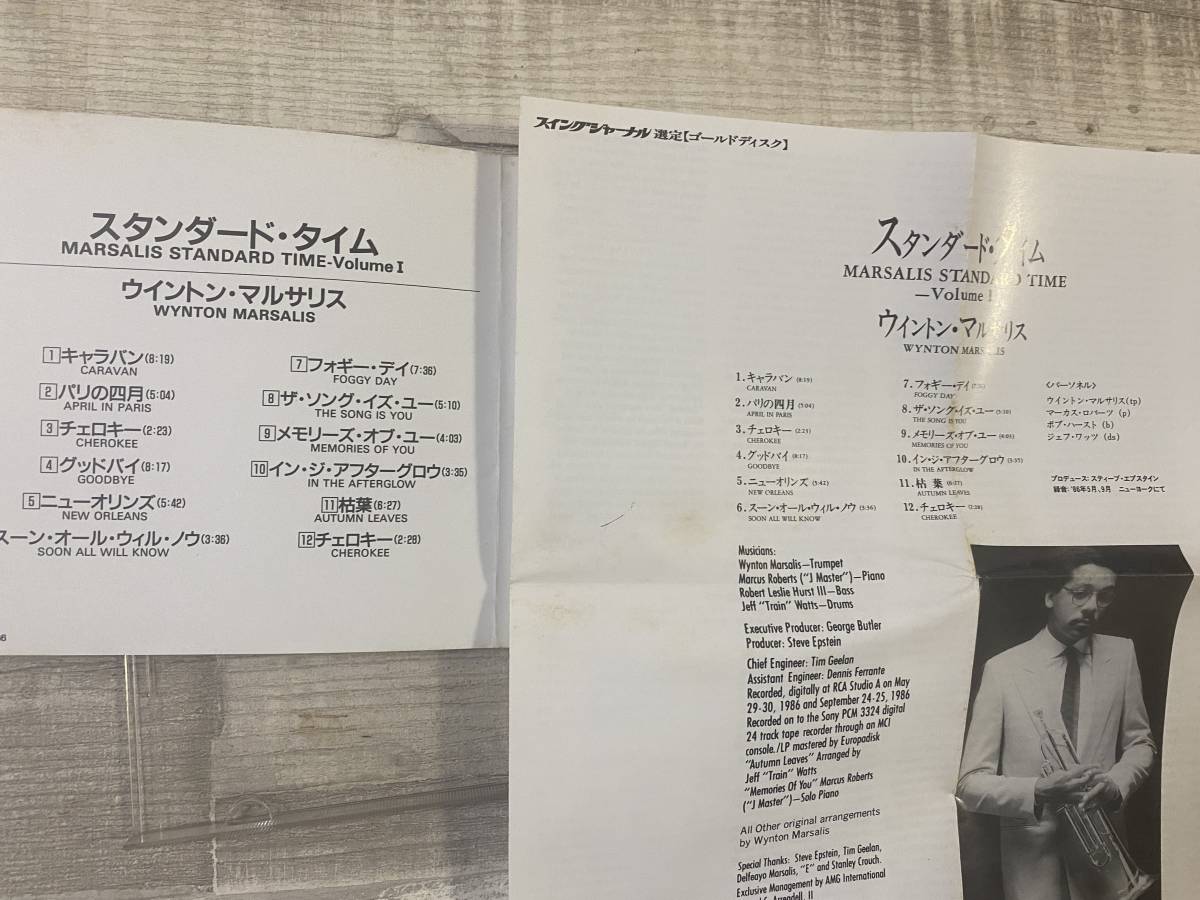 スタンダード・タイム
MARSALIS STANDARD TIME-Volume I
ウイントン・マルサリス
WYNTON MARSALIS
1 キャラバン(8:19)
CARAVAN
2 パリの四月(5:04)
APRIL IN PARIS
3 チェロキー(2:23)
CHEROKEE
4 グッドバイ(8:17)
GOODBYE
5 ニューオリンズ(5:42)
NEW ORLEANS
スーン・オール・ウィル・ノウ(3:36)
SOON ALL WILL KNOW
7 フォギー・デイ(7:36)
FOGGY DAY
8 ザ・ソング・イズ・ユー(5:10)
THE SONG IS YOU
9 メモリーズ・オブ・ユー(4:03)
MEMORIES OF YOU
10 イン・ジ・アフターグロウ(3:35)
IN THE AFTERGLOW
11 枯葉(6:27)
AUTUMN LEAVES
12 チェロキー(2:28)
CHEROKEE
スイングジャーナル 選定【ゴールドディスク】
スタンダード・タイム
MARSALIS STANDARD TIME
—Volume I
ウイントン・マルサリス
WYNTON MARSALIS
1. キャラバン (8:19)
CARAVAN
2. パリの四月 (5:04)
APRIL IN PARIS
3. チェロキー (2:23)
CHEROKEE
4. グッドバイ (8:17)
GOODBYE
5. ニューオリンズ (5:42)
NEW ORLEANS
6. スーン・オール・ウィル・ノウ (3:36)
SOON ALL WILL KNOW
7. フォギー・デイ
FOGGY DAY
8. ザ・ソング・イズ・ユー (5:10)
THE SONG IS YOU
9. メモリーズ・オブ・ユー (4:03)
MEMORIES OF YOU
10. イン・ジ・アフターグロウ (3:35)
IN THE AFTERGLOW
11. 枯葉 (6:27)
AUTUMN LEAVES
12. チェロキー (2:28)
CHEROKEE
〈パーソネル〉
ウイントン・マルサリス(tp)
マーカス・ロバーツ (p)
ボブ・ハースト (b)
ジェフ・ワッツ (ds)
プロデュース: スティーブ・エプスタイン
録音: '86年5月、9月 ニューヨークにて
Musicians:
Wynton Marsalis—Trumpet
Marcus Roberts ("J Master")—Piano
Robert Leslie Hurst III—Bass
Jeff "Train" Watts—Drums
Executive Producer: George Butler
Producer: Steve Epstein
Chief Engineer: Tim Geelan
Assistant Engineer: Dennis Ferrante
Recorded, digitally at RCA Studio A on May
29-30, 1986 and September 24-25, 1986
Recorded on to the Sony PCM 3324 digital
24 track tape recorder through an MCI
console./LP mastered by Europadisk
"Autumn Leaves" Arranged by
Jeff "Train" Watts
"Memories Of You" Marcus Roberts
("J Master")—Solo Piano
All Other original arrangements
by Wynton Marsalis
Special Thanks: Steve Epstein, Tim Geelan,
Delfeayo Marsalis, "E" and Stanley Crouch.
Exclusive Management by AMG International
Arrendell, II